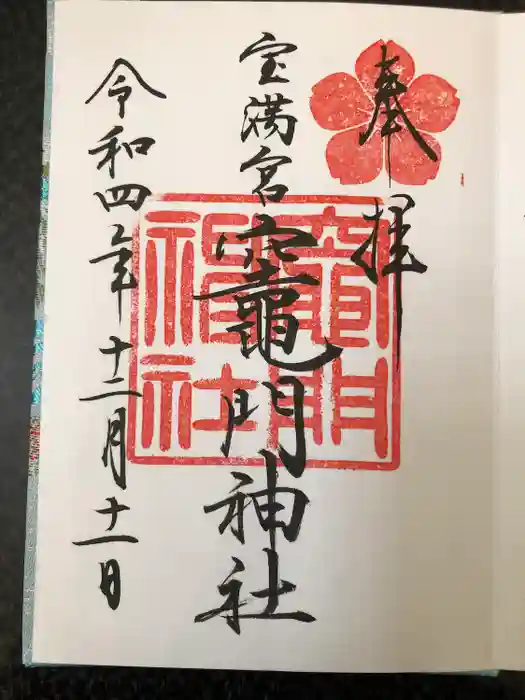 奉拝
宝満宮竈門神社
竈門神社
令和四年十二月十一日